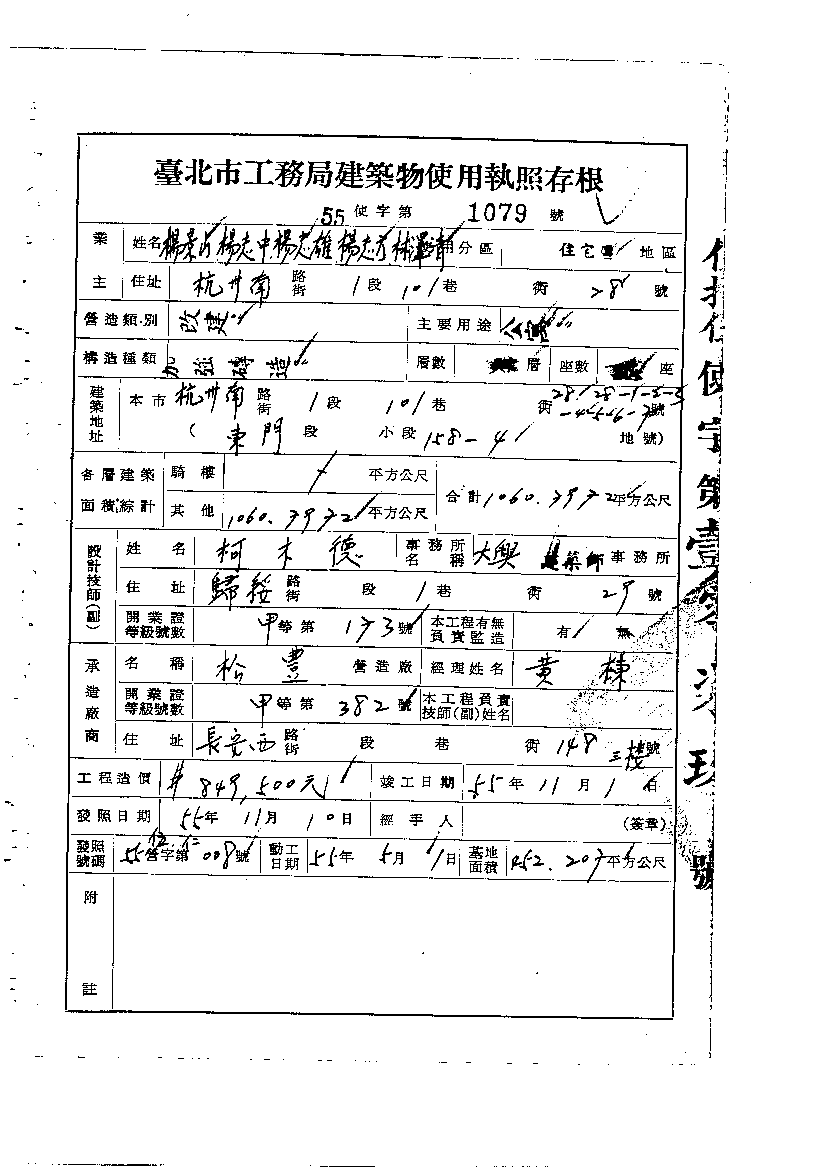 臺北市工務局建築物使用執照存根
55 使字第 1079 號
業主 姓名 楊 楊志中 楊志雄 楊志 林 分區 住宅 地區
住址 杭州南 路街 1段 101巷 衖 28 號
營造類別 改建 主要用途
構造種類 加強磚造 層數 層 座數 座
建築地址 本市 杭州南 路街 1段 101巷 衖 號
( 東門 段 小段 158-4 地號)
各層建築面積綜計 騎樓 平方公尺 合計 1060.7972 平方公尺
其他 1060.7972 平方公尺
設計技師(副) 姓名 柯木德 事務所名稱 大興建築師事務所
住址 歸綏 路街 段 1巷 衖 29 號
開業證等級號數 甲等第 173 號 本工程有無負責監造 有 無
承造廠商 名稱 松豐 營造廠 經理姓名 黃棟
開業證等級號數 甲等第 382 號 本工程負責技師(副)姓名
住址 長安西 路街 段 巷 衖 148 三樓號
工程造價 849,500元 竣工日期 55年11月1日
發照日期 55年11月10日 經手人 (簽章)
發照號碼 55營字第008號 動工日期 55年5月1日 基地面積 452.207平方公尺
附註
使字第壹 號